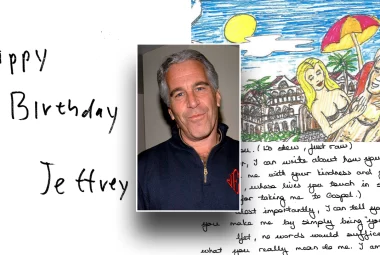 Happy
Birthday
Jeffrey
ou. (to draw, just now)
r, I can write about how you
me with your kindness and
, whose lives you touch in
for taking me to
most importantly, I can tell you
you make me by simply being you
Yet, no words would suffice
what you really mean to me. I am